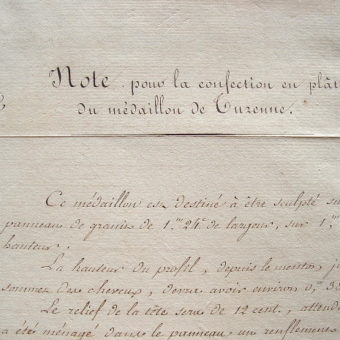 Note pour la confection en plât
du médaillon de Turenne.
Ce médaillon est destiné à être sculpté su
panneau de granit de 1.m 24.c de largeur, sur 1.m
hauteur.
La hauteur du profil, depuis le menton, j
sommet des cheveux, devra avoir environ 0,m 3
Le relief de la tête sera de 12 cent., attend
a été ménagé dans le panneau un renflement